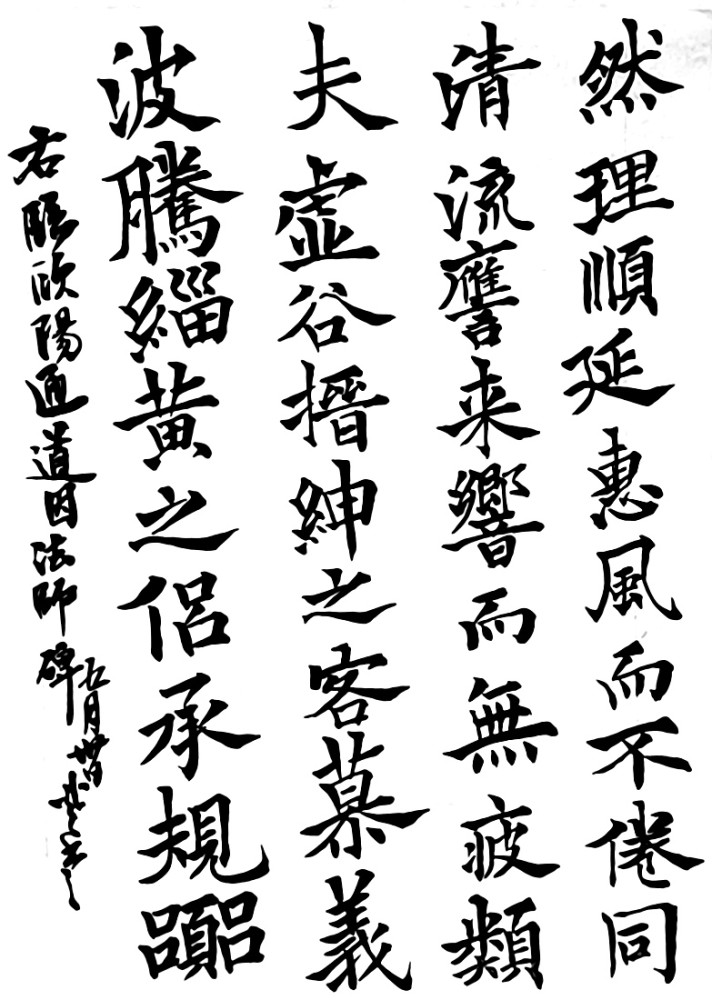 然理順延惠風而不倦同
清流讐来響而無疲類
夫虛谷搢紳之客慕義
波騰緇黃之侶承規嚣
右臨欧陽通道因法師碑
五月卅日